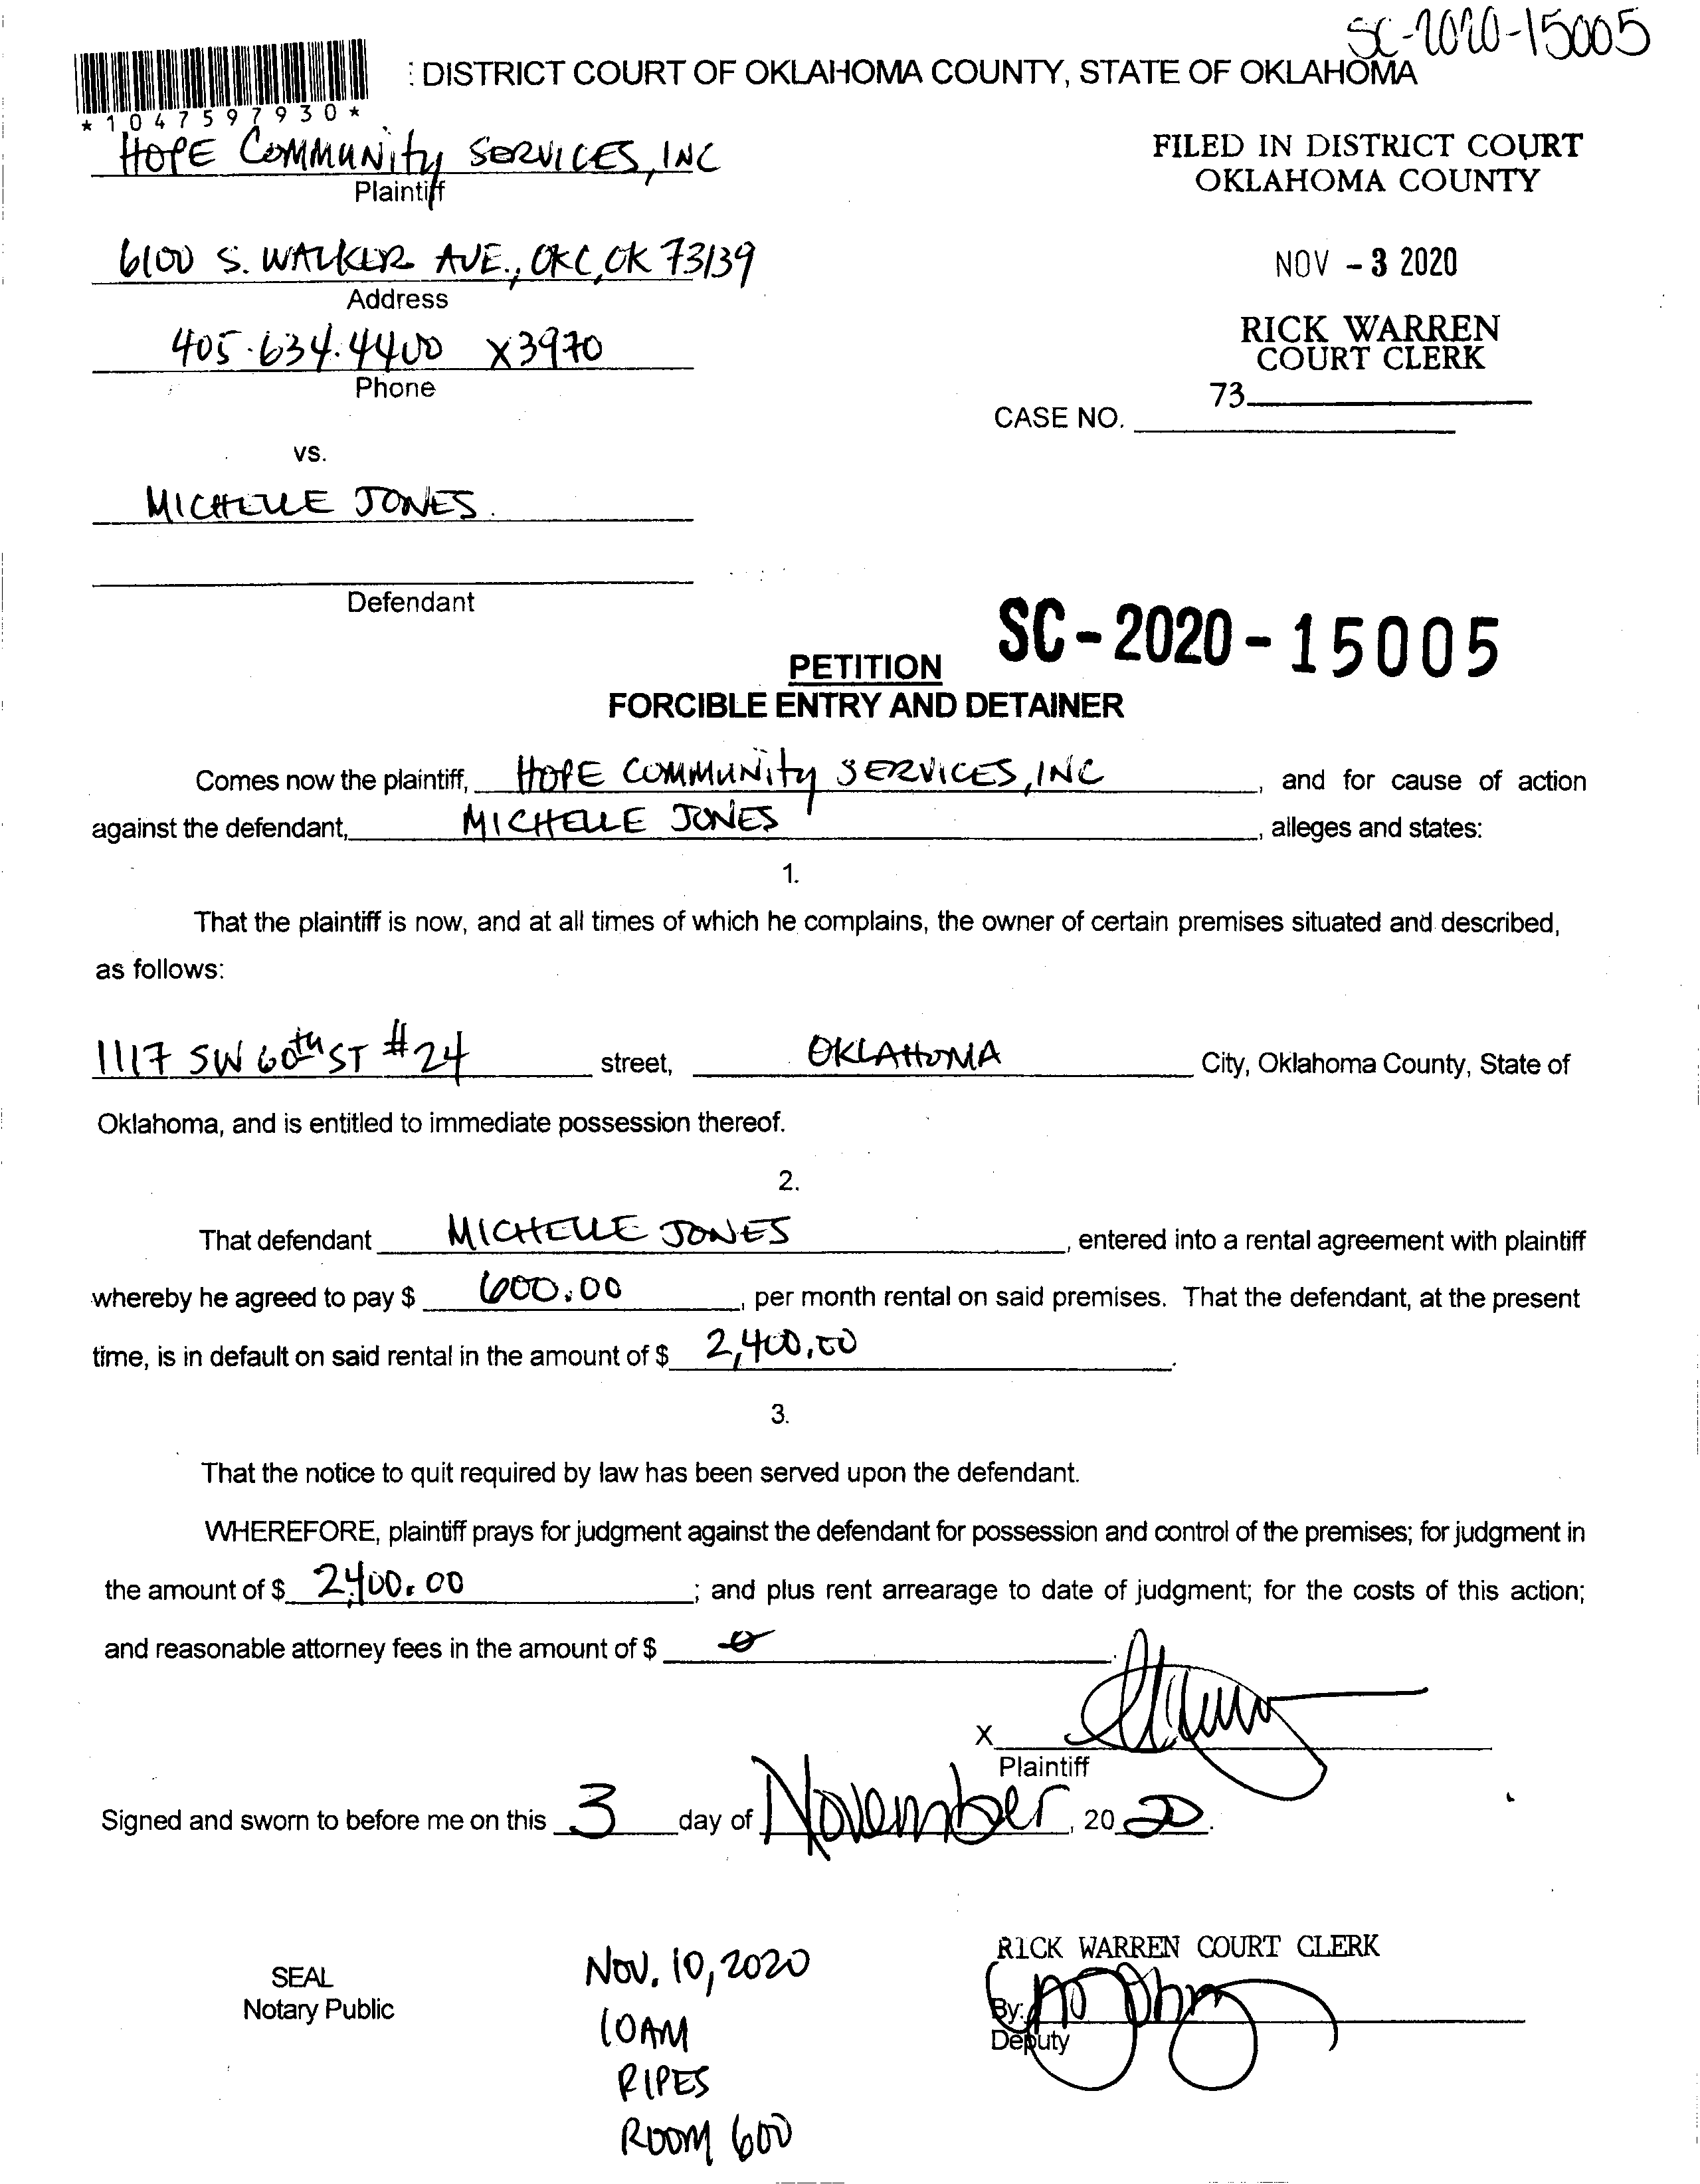 SC-2020-15005
: DISTRICT COURT OF OKLAHOMA COUNTY, STATE OF OKLAHOMA
*1047597930*
HOPE COMMUNITY SERVICES, INC
Plaintiff
FILED IN DISTRICT COURT
OKLAHOMA COUNTY
6100 S. WALKER AVE., OKC, OK 73139
Address
NOV - 3 2020
405.634.4400 X3970
Phone
RICK WARREN
COURT CLERK
73
CASE NO.
vs.
MICHELLE JONES.
Defendant
SC-2020-15005
PETITION
FORCIBLE ENTRY AND DETAINER
Comes now the plaintiff, HOPE COMMUNITY SERVICES, INC, and for cause of action
against the defendant, MICHELLE JONES, alleges and states:
1.
That the plaintiff is now, and at all times of which he complains, the owner of certain premises situated and described,
as follows:
1117 SW 60th ST #24 street, OKLAHOMA City, Oklahoma County, State of
Oklahoma, and is entitled to immediate possession thereof.
2.
That defendant MICHELLE JONES, entered into a rental agreement with plaintiff
whereby he agreed to pay $ 600.00, per month rental on said premises. That the defendant, at the present
time, is in default on said rental in the amount of $ 2,400.00.
3.
That the notice to quit required by law has been served upon the defendant.
WHEREFORE, plaintiff prays for judgment against the defendant for possession and control of the premises; for judgment in
the amount of $ 2,400.00; and plus rent arrearage to date of judgment; for the costs of this action;
and reasonable attorney fees in the amount of $ 0.
X
Plaintiff
Signed and sworn to before me on this 3 day of November, 2020.
SEAL
Notary Public
NOV. 10, 2020
10AM
RIPES
ROOM 600
RICK WARREN COURT CLERK
By:
Deputy